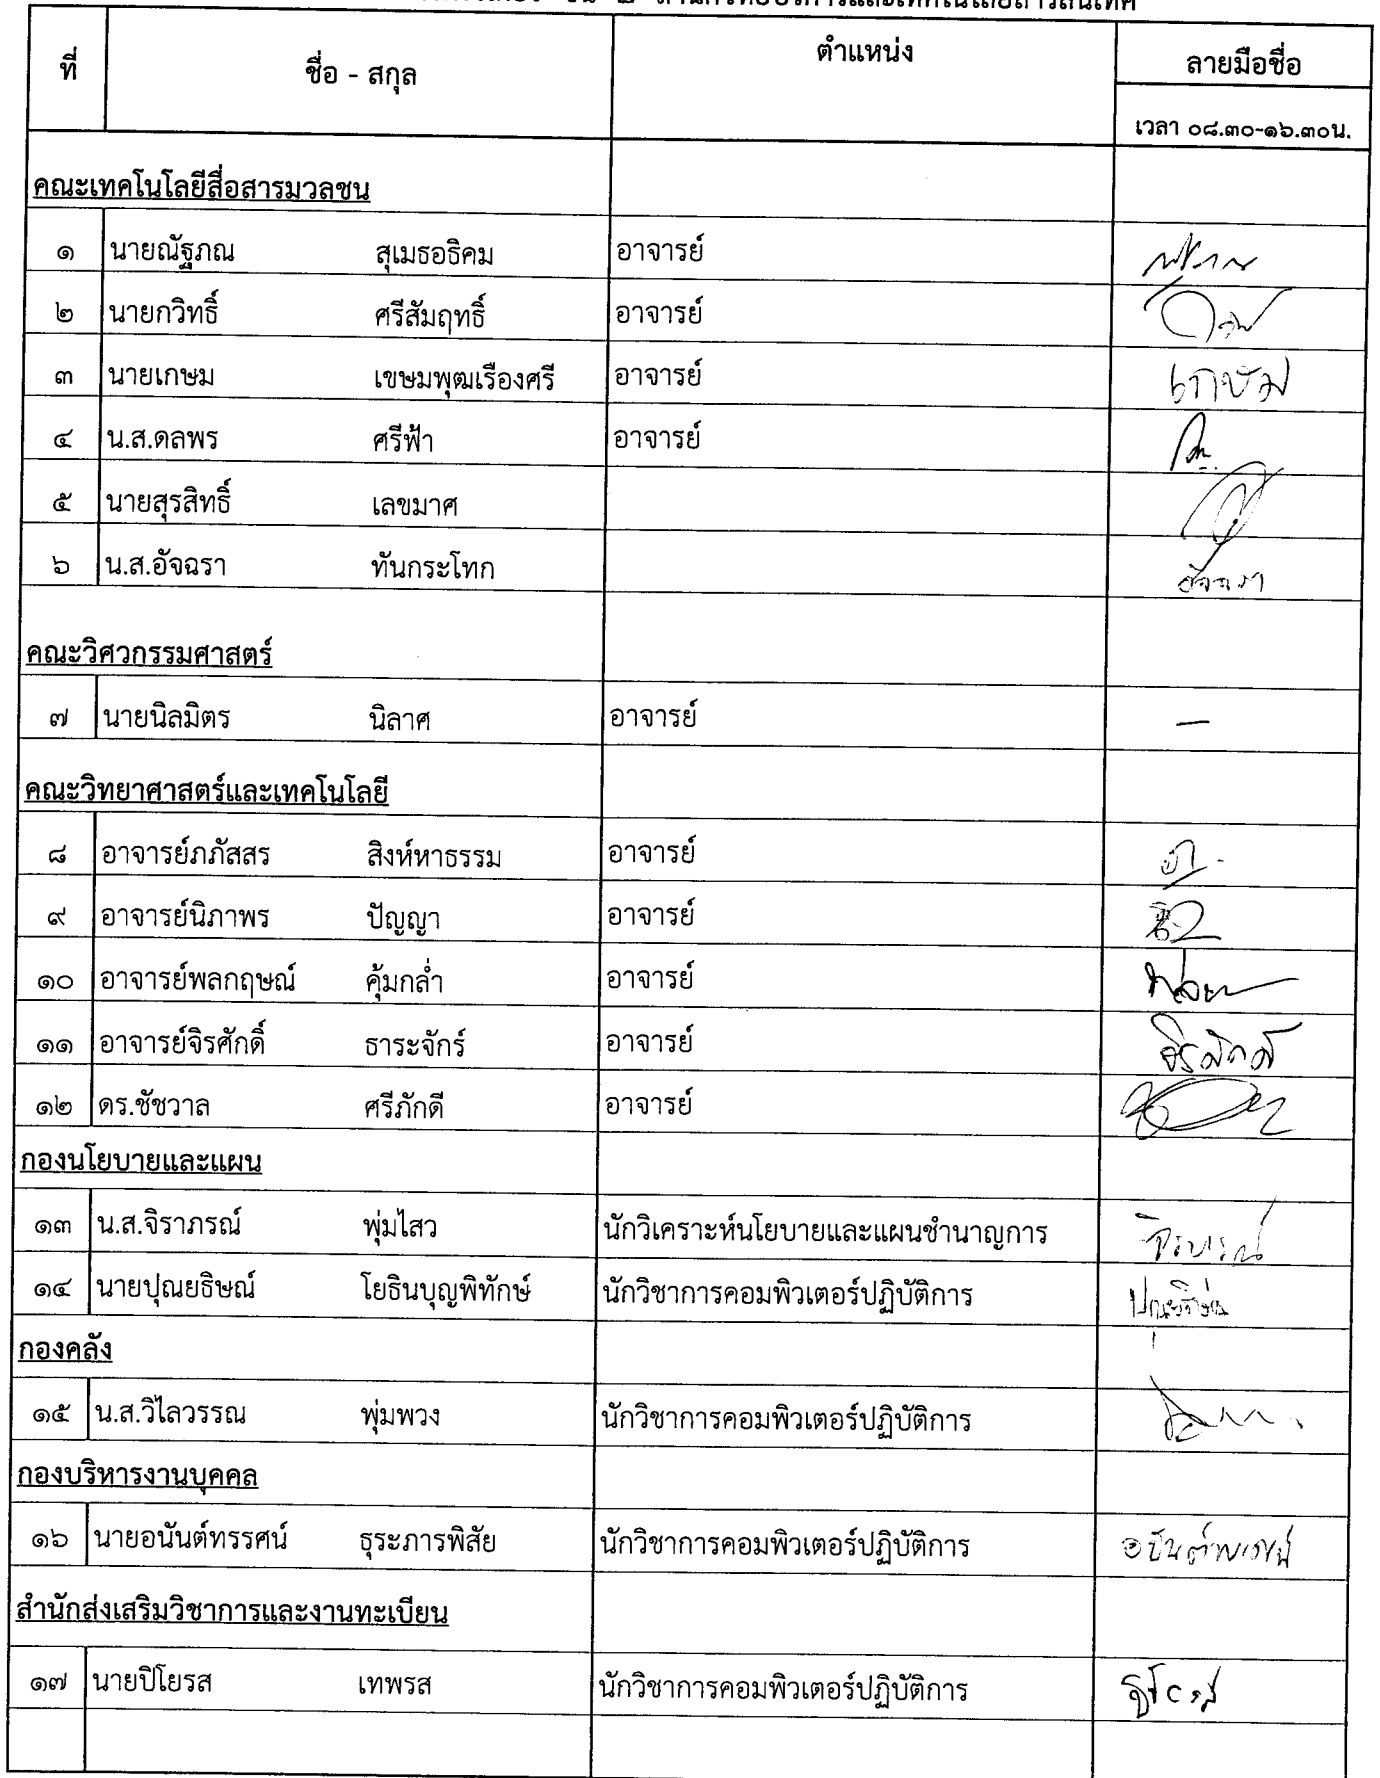 ชั้น ๒ สำนักวิทยบริการและเทคโนโลยีสารสนเทศ
ที่ ชื่อ - สกุล ตำแหน่ง ลายมือชื่อ
เวลา ๐๘.๓๐-๑๖.๓๐น.
คณะเทคโนโลยีสื่อสารมวลชน
๑ นายณัฐภณ สุเมธอธิคม อาจารย์
๒ นายกวิทธิ์ ศรีสัมฤทธิ์ อาจารย์
๓ นายเกษม เขษมพุฒเรืองศรี อาจารย์ เกษม
๔ น.ส.ดลพร ศรีฟ้า อาจารย์
๕ นายสุรสิทธิ์ เลขมาศ
๖ น.ส.อัจฉรา ทันกระโทก อัจฉรา
คณะวิศวกรรมศาสตร์
๗ นายนิลมิตร นิลาศ อาจารย์ -
คณะวิทยาศาสตร์และเทคโนโลยี
๘ อาจารย์ภภัสสร สิงห์หาธรรม อาจารย์
๙ อาจารย์นิภาพร ปัญญา อาจารย์
๑๐ อาจารย์พลกฤษณ์ คุ้มกล่ำ อาจารย์
๑๑ อาจารย์จิรศักดิ์ ธาระจักร์ อาจารย์ จิรศักดิ์
๑๒ ดร.ชัชวาล ศรีภักดี อาจารย์
กองนโยบายและแผน
๑๓ น.ส.จิราภรณ์ พุ่มไสว นักวิเคราะห์นโยบายและแผนชำนาญการ จิราภรณ์
๑๔ นายปุณยธิษณ์ โยธินบุญพิทักษ์ นักวิชาการคอมพิวเตอร์ปฏิบัติการ ปุณยธิษณ์
กองคลัง
๑๕ น.ส.วิไลวรรณ พุ่มพวง นักวิชาการคอมพิวเตอร์ปฏิบัติการ
กองบริหารงานบุคคล
๑๖ นายอนันต์ทรรศน์ ธุระภารพิสัย นักวิชาการคอมพิวเตอร์ปฏิบัติการ อนันต์ทรรศน์
สำนักส่งเสริมวิชาการและงานทะเบียน
๑๗ นายปิโยรส เทพรส นักวิชาการคอมพิวเตอร์ปฏิบัติการ